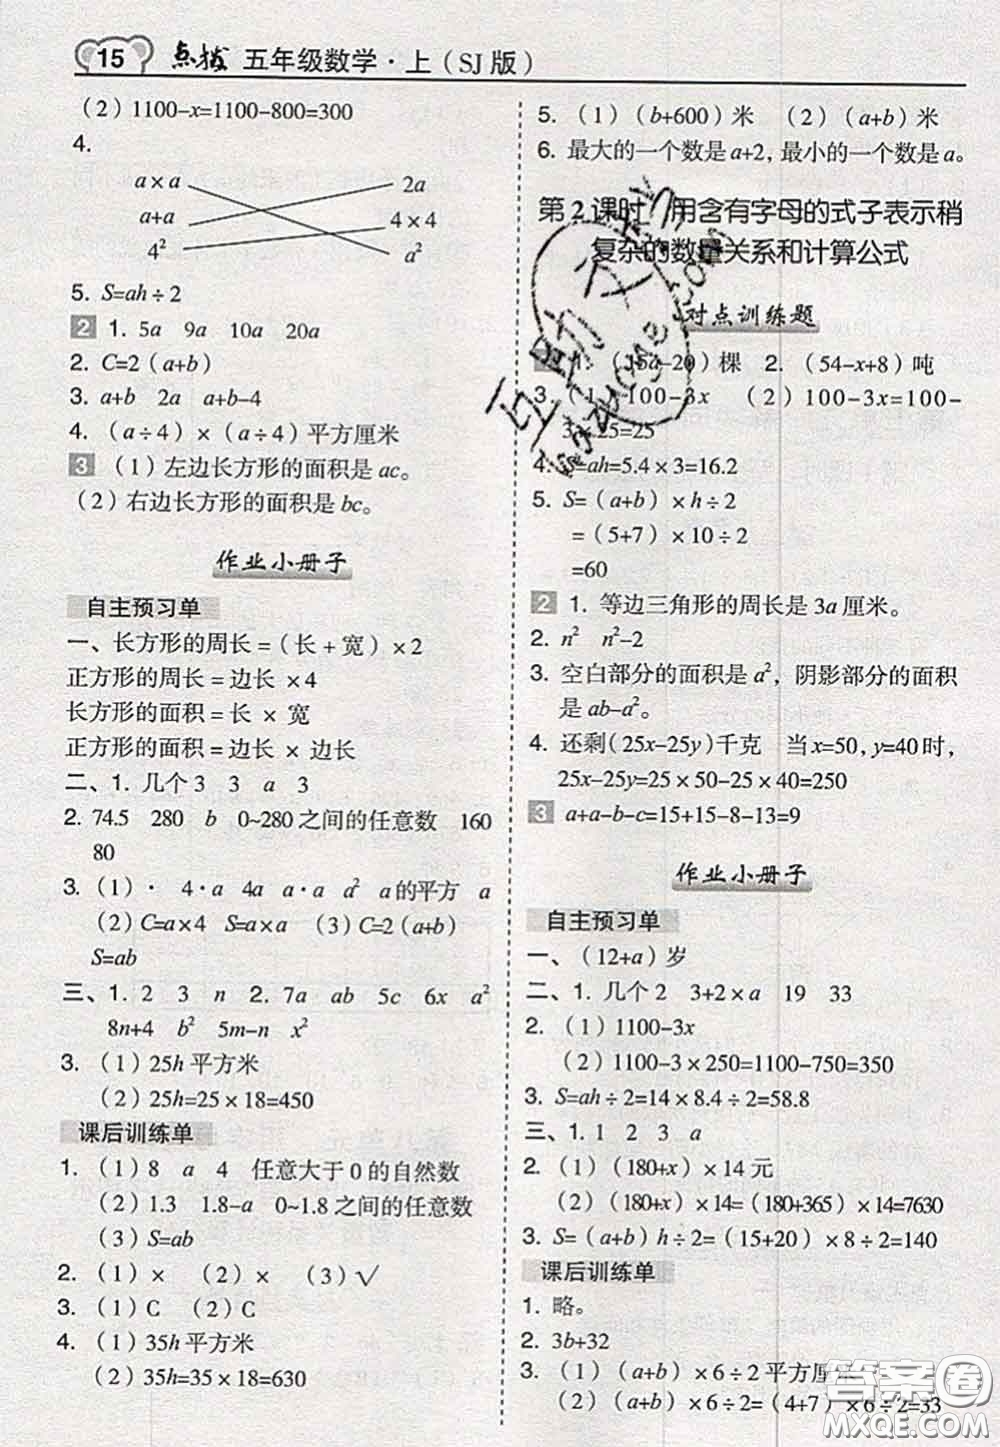 15 点拨 五年级数学·上(SJ版)
(2)1100-x=1100-800=300
4.
a×a 2a
a+a 4×4
4² a²
5. S=ah÷2
2 1. 5a 9a 10a 20a
2. C=2(a+b)
3. a+b 2a a+b-4
4.(a÷4)×(a÷4)平方厘米
3 (1)左边长方形的面积是ac。
(2)右边长方形的面积是bc。
作业小册子
自主预习单
一、长方形的周长=(长+宽)×2
正方形的周长=边长×4
长方形的面积=长×宽
正方形的面积=边长×边长
二、1. 几个3 3 a 3
2. 74.5 280 b 0~280之间的任意数 160
80
3.(1)· 4·a 4a a·a a² a的平方 a
(2)C=a×4 S=a×a (3)C=2(a+b)
S=ab
三、1. 2 3 n 2. 7a ab 5c 6x a²
8n+4 b² 5m-n x²
3.(1)25h平方米
(2)25h=25×18=450
课后训练单
1.(1)8 a 4 任意大于0的自然数
(2)1.3 1.8-a 0~1.8之间的任意数
(3)S=ab
2.(1)× (2)× (3)√
3.(1)C (2)C
4.(1)35h平方米
(2)35h=35×18=630
5.(1)(b+600)米 (2)(a+b)米
6. 最大的一个数是a+2,最小的一个数是a。
第2课时 用含有字母的式子表示稍
复杂的数量关系和计算公式
对点训练题
1.(15a-20)棵 2.(54-x+8)吨
3.(1)100-3x (2)100-3x=100-
3×25=25
4. S=ah=5.4×3=16.2
5. S=(a+b)×h÷2
=(5+7)×10÷2
=60
2 1. 等边三角形的周长是3a厘米。
2. n² n²-2
3. 空白部分的面积是a²,阴影部分的面积
是ab-a²。
4. 还剩(25x-25y)千克 当x=50,y=40时,
25x-25y=25×50-25×40=250
3 a+a-b-c=15+15-8-13=9
作业小册子
自主预习单
一、(12+a)岁
二、1. 几个2 3+2×a 19 33
2.(1)1100-3x
(2)1100-3×250=1100-750=350
3. S=ah÷2=14×8.4÷2=58.8
三、1. 1 2 3 a
2.(1)(180+x)×14元
(2)(180+x)×14=(180+365)×14=7630
3. S=(a+b)h÷2=(15+20)×8÷2=140
课后训练单
1. 略。
2. 3b+32
3.(1)(a+b)×6÷2平方厘米
(2)(a+b)×6÷2=(4+7)×6÷2=33
答案圈
MXQE.COM